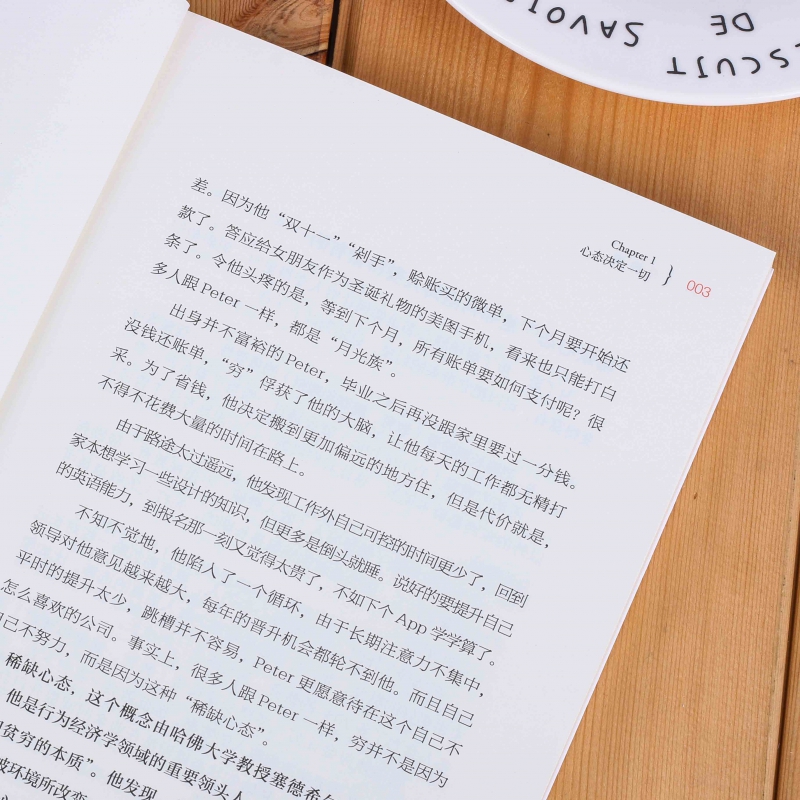 SCUIT
DE
SAVOI
Chapter 1
心态决定一切
003
差。因为他“双十一”“剁手”，赊账买的微单，下个月要开始还
款了。答应给女朋友作为圣诞礼物的美图手机，看来也只能打白
条了。令他头疼的是，等到下个月，所有账单要如何支付呢？很
多人跟 Peter 一样，都是“月光族”。
出身并不富裕的 Peter，毕业之后再没跟家里要过一分钱。
没钱还账单，“穷”俘获了他的大脑，让他每天的工作都无精打
采。为了省钱，他决定搬到更加偏远的地方住，但是代价就是，
不得不花费大量的时间在路上。
由于路途太过遥远，他发现工作外自己可控的时间更少了，回到
家本想学习一些设计的知识，但更多是倒头就睡。说好的要提升自己
的英语能力，到报名那一刻又觉得太贵了，不如下个 App 学学算了。
不知不觉地，他陷入了一个循环，由于长期注意力不集中，
领导对他意见越来越大，每年的晋升机会都轮不到他。而且自己
平时的提升太少，跳槽并不容易，Peter 更愿意待在这个自己不
怎么喜欢的公司。事实上，很多人跟 Peter 一样，穷并不是因为
自己不努力，而是因为这种“稀缺心态”。
稀缺心态，这个概念由哈佛大学教授塞德希
他是行为经济学领域的重要领头人
贫穷的本质”。他发现
被环境所改变